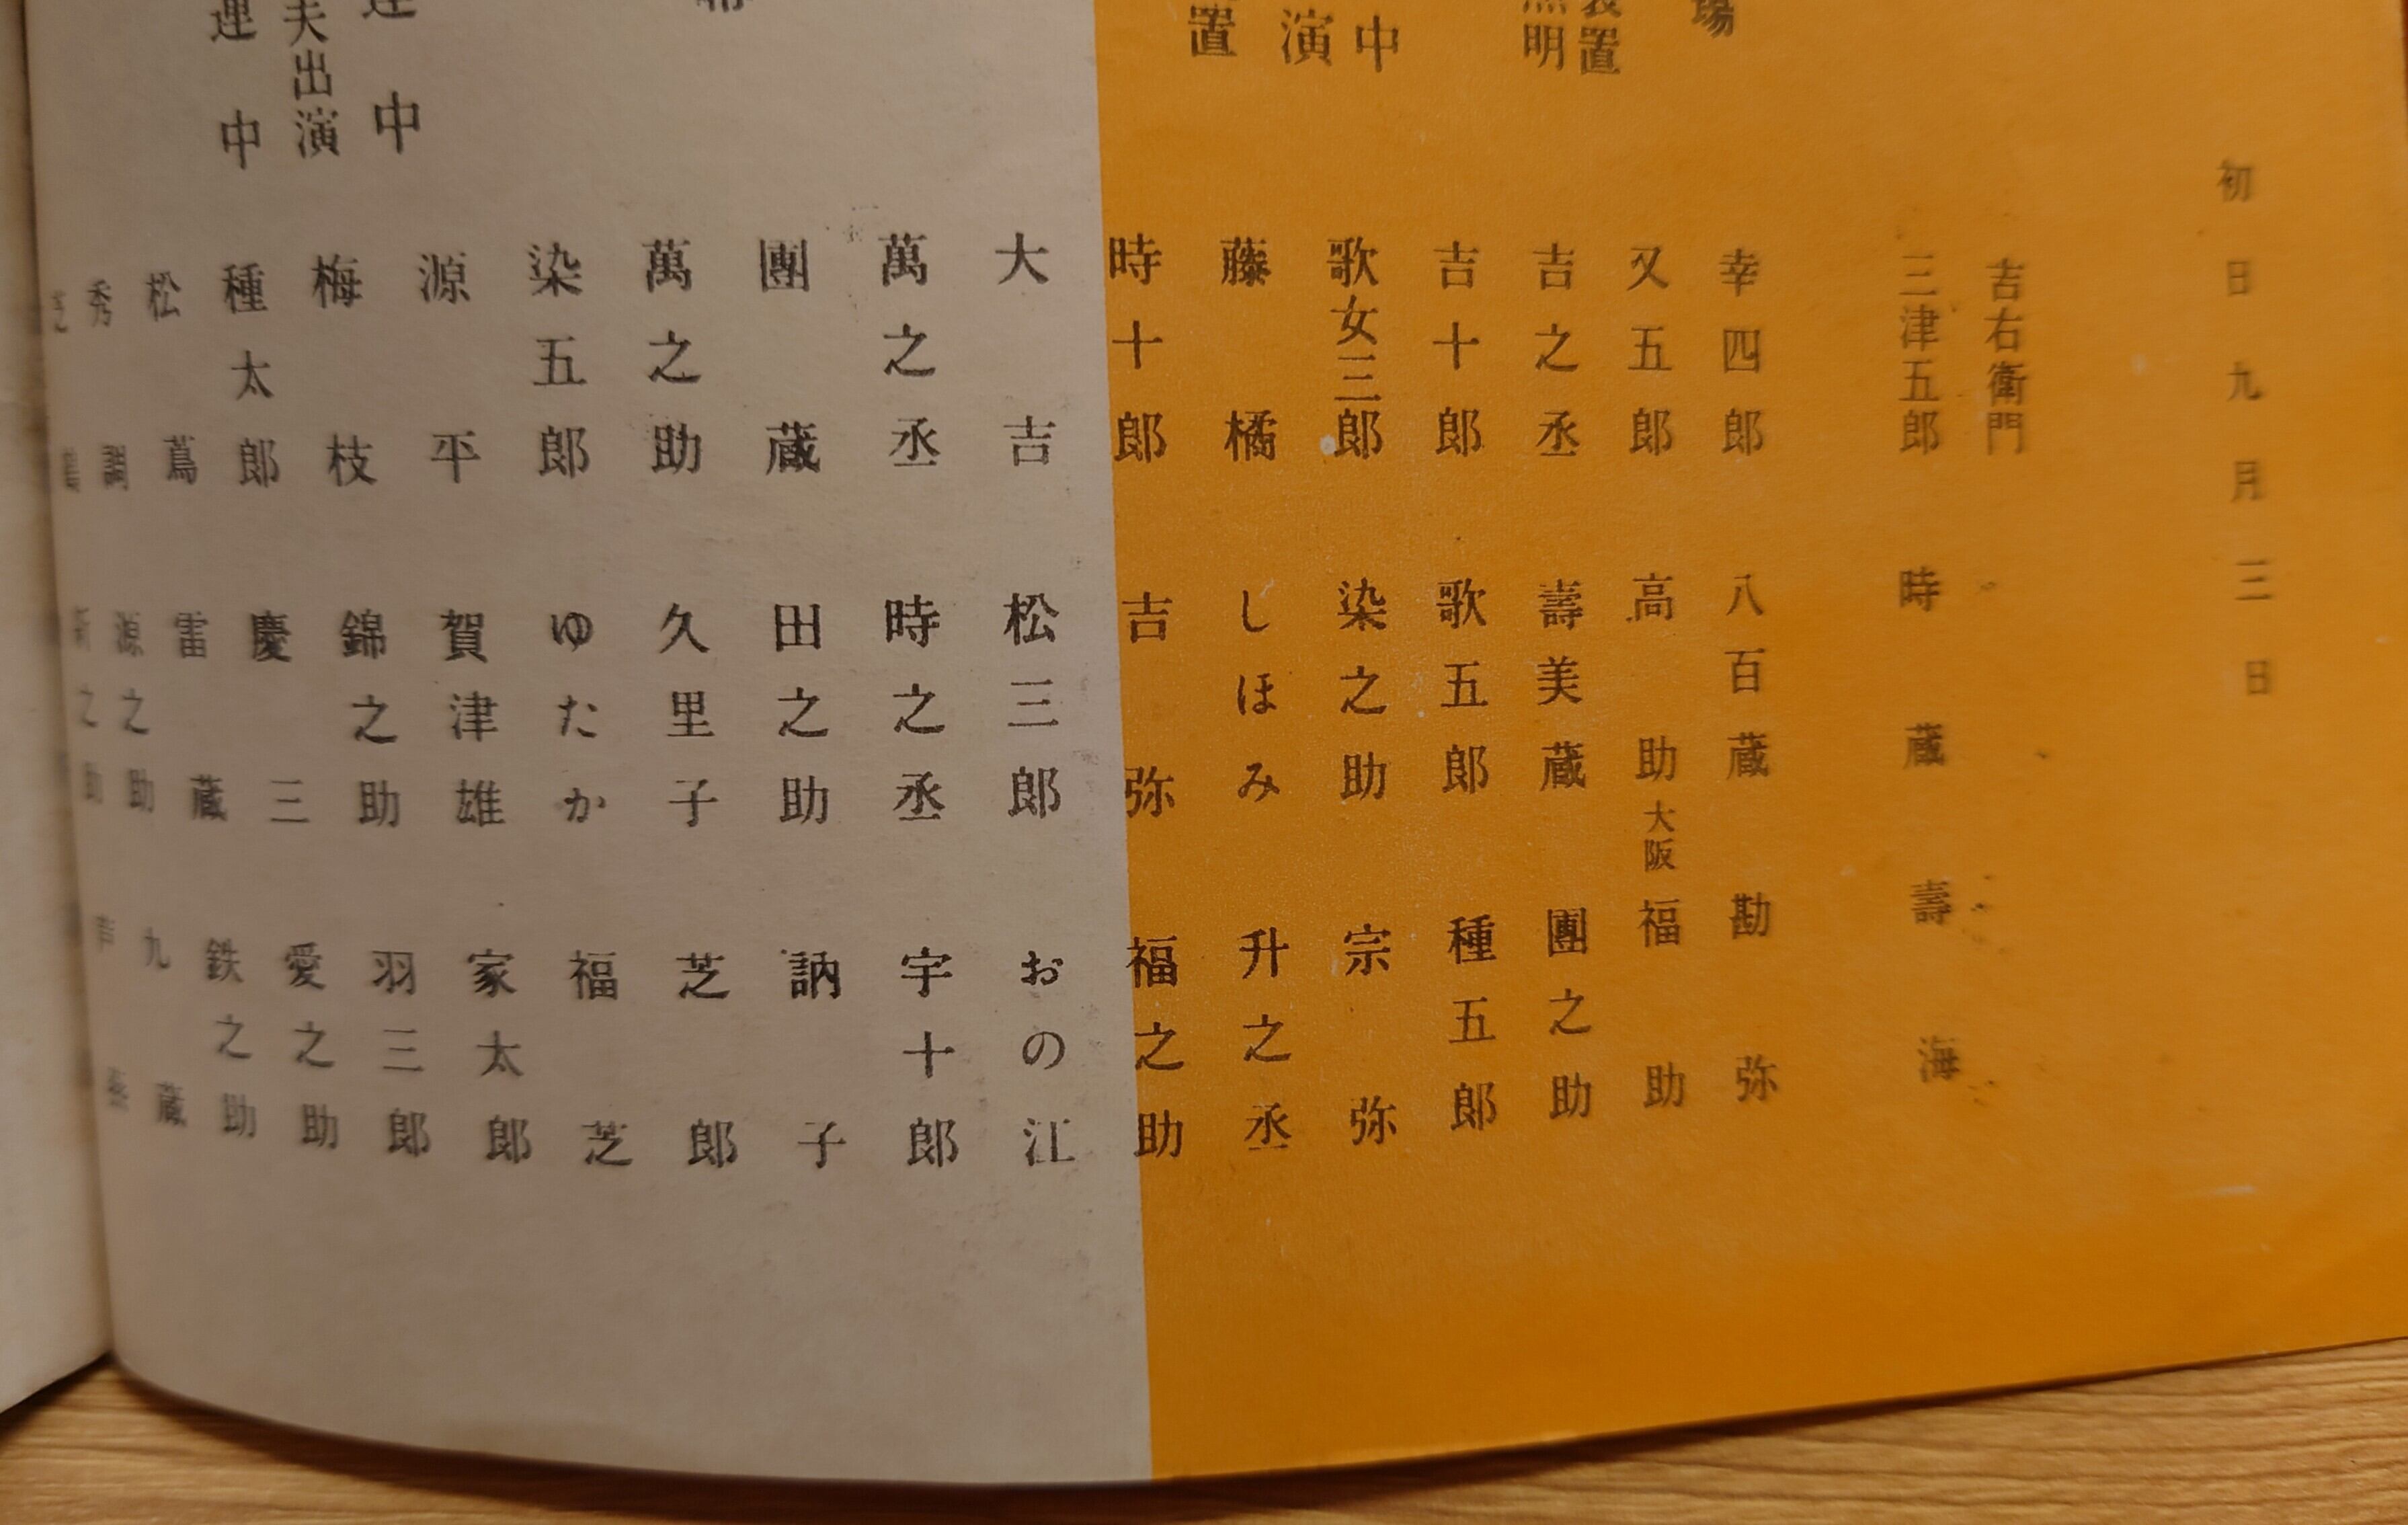 初日九月三日
吉右衛門
三津五郎　時蔵　壽海
場
幸四郎　八百蔵　勘弥
又五郎　高助　大阪福助
装置
照明
吉之丞　壽美蔵　團之助
吉十郎　歌五郎　種五郎
中
歌女三郎　染之助　宗弥
演
藤橘　しほみ　升之丞
置
時十郎　吉弥　福之助
大吉　松三郎　おの江
萬之丞　時之丞　宇十郎
團蔵　田之助　訥子
萬之助　久里子　芝郎
染五郎　ゆたか　福芝
源平　賀津雄　家太郎
連中
梅枝　錦之助　羽三郎
夫出演
種太郎　慶三　愛之助
連中
松蔦　雷蔵　鉄之助
秀調　源之助　九蔵
芝鶴　之助